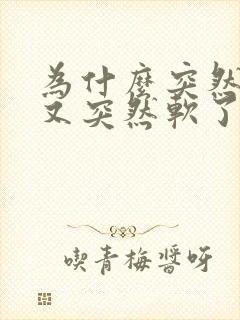 为什麼突然
又突然軟了
喫青梅醬呀